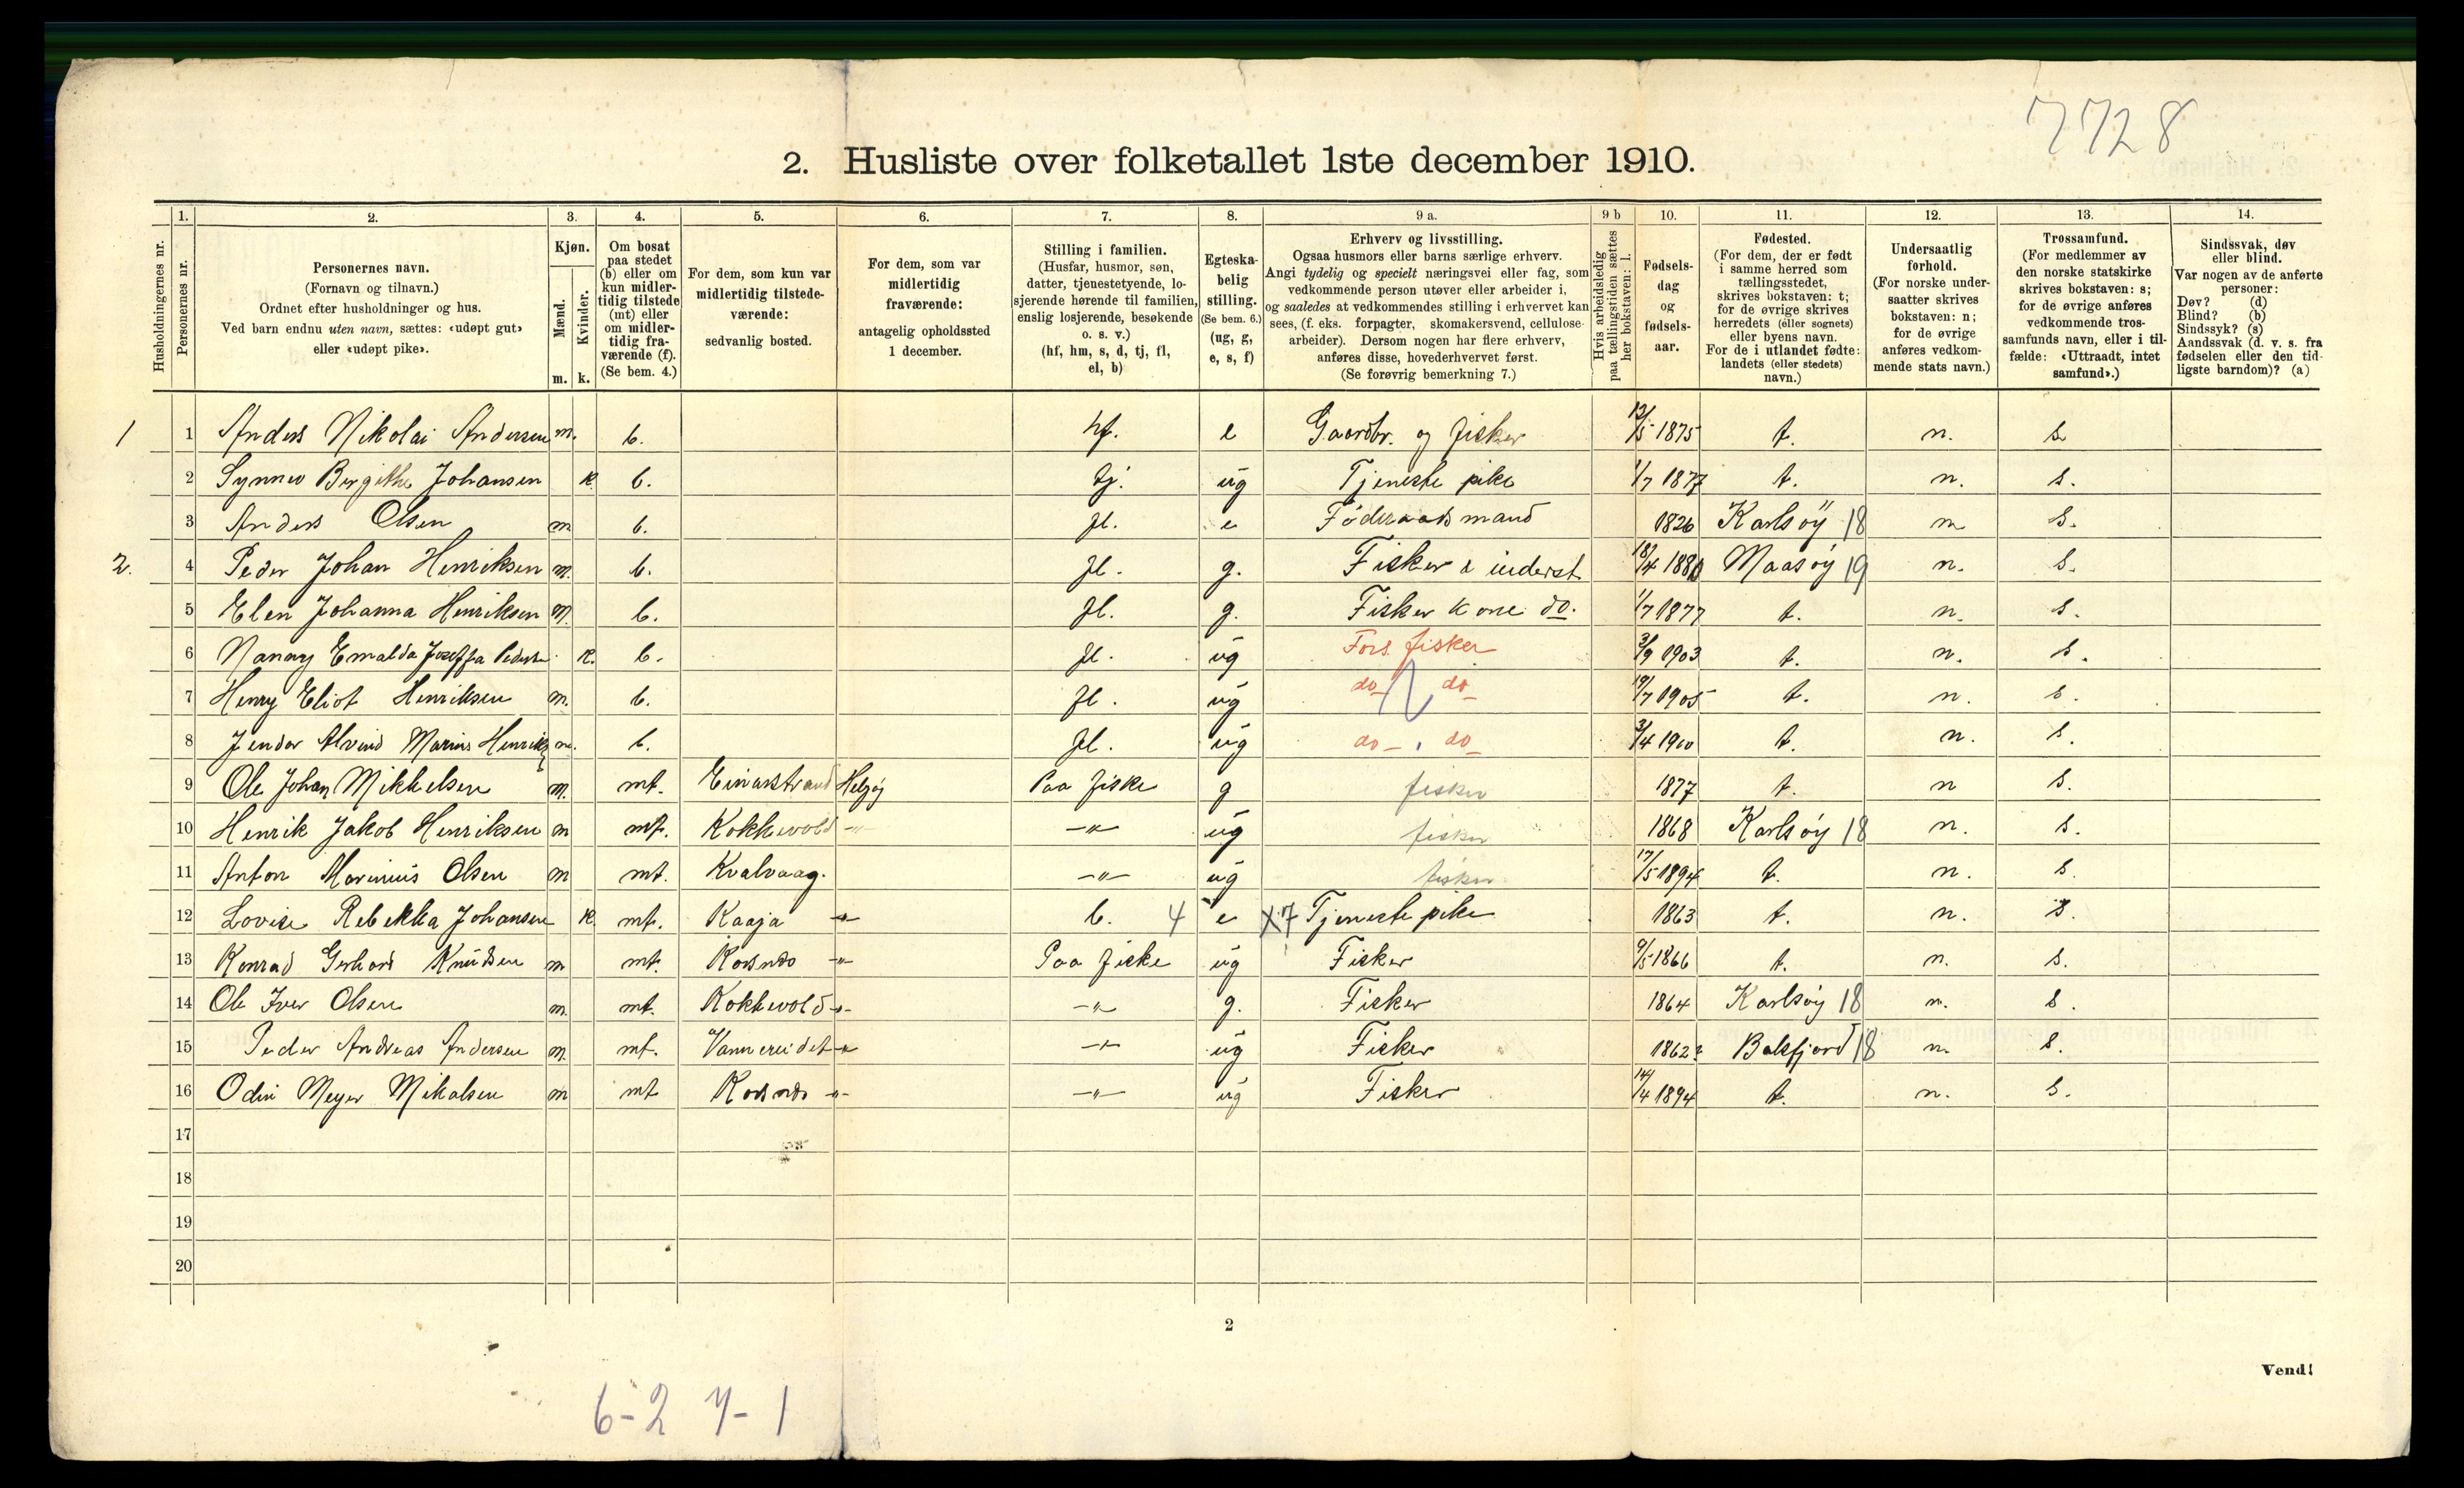 7728
2. Husliste over folketallet 1ste december 1910.
Husholdningernes nr.
1. Personernes nr.
2. Personernes navn. (Fornavn og tilnavn.) Ordnet efter husholdninger og hus. Ved barn endnu uten navn, sættes: «udøpt gut» eller «udøpt pike».
3. Kjøn. Mænd. m. Kvinder. k.
4. Om bosat paa stedet (b) eller om kun midlertidig tilstede (mt) eller om midlertidig fraværende (f). (Se bem. 4.)
5. For dem, som kun var midlertidig tilstedeværende: sedvanlig bosted.
6. For dem, som var midlertidig fraværende: antagelig opholdssted 1 december.
7. Stilling i familien. (Husfar, husmor, søn, datter, tjenestetyende, losjerende hørende til familien, enslig losjerende, besøkende o. s. v.) (hf, hm, s, d, tj, fl, el, b)
8. Egteskabelig stilling. (Se bem. 6.) (ug, g, e, s, f)
9 a. Erhverv og livsstilling. Ogsaa husmors eller barns særlige erhverv. Angi tydelig og specielt næringsvei eller fag, som vedkommende person utøver eller arbeider i, og saaledes at vedkommendes stilling i erhvervet kan sees, (f. eks. forpagter, skomakersvend, cellulosearbeider). Dersom nogen har flere erhverv, anføres disse, hovederhvervet først. (Se forøvrig bemerkning 7.)
9 b Hvis arbeidsledig paa tællingstiden sættes her bokstaven: l.
10. Fødselsdag og fødselsaar.
11. Fødested. (For dem, der er født i samme herred som tællingsstedet, skrives bokstaven: t; for de øvrige skrives herredets (eller sognets) eller byens navn. For de i utlandet fødte: landets (eller stedets) navn.)
12. Undersaatlig forhold. (For norske undersaatter skrives bokstaven: n; for de øvrige anføres vedkommende stats navn.)
13. Trossamfund. (For medlemmer av den norske statskirke skrives bokstaven: s; for de øvrige anføres vedkommende trossamfunds navn, eller i tilfælde: «Uttraadt, intet samfund».)
14. Sindssvak, døv eller blind. Var nogen av de anførte personer: Døv? (d) Blind? (b) Sindssyk? (s) Aandssvak (d. v. s. fra fødselen eller den tidligste barndom)? (a)
1 1 Anders Nikolai Andersen m. b. hf. e Gaardbr. og fisker 12/5 1875 t. n. s
2 Synnev Birgithe Johansen k. b. tj. ug Tjeneste pike 1/7 1877 t. n. s.
3 Anders Olsen m b. fl. e Føderaads mand 1826 Karlsöy 18 n s.
2. 4 Peder Johan Henriksen m. b. fl. g. Fisker & inderst 18/4 1880 Maasöy 19 n. s.
5 Elen Johanna Henriksen m. b. fl. g. Fisker kone do. 1/7 1877 t. n. s.
6 Nanny Emalda Joseffa k. b. fl. ug Fors. fisker 3/9 1903 t. n. s.
7 Henry Eliot Henriksen m. b. fl. ug do do 19/7 1905 t. n. s.
8 Marius m. b. fl. ug do do 3/4 1910 t. n. s.
9 Ole Johan Mikkelsen m. mt. Einarstrand Helgöy Paa fiske g fisker 1877 t. n s.
10 Henrik Jakob Henriksen m mt. Kokkevold -"- -"- ug fisker 1868 Karlsöy 18 n. s.
11 Anton Marinius Olsen m mt. Kvalvaag. -"- ug fisker 17/5 1894 t. n. s.
12 Lovise Rebekka Johansen k. mt. Kaaja -"- b. 4 e X7 Tjeneste pike 1863 t. n. s.
13 Konrad Gerhard Knudsen m mt. Korsnes -"- Paa fiske ug Fisker 9/5 1866 t. n. s.
14 Ole Iver Olsen m. mt. Kokkevold -"- -"- g. Fisker 1864 Karlsöy 18 n. s.
15 Peder Andreas Andersen m. mt. Vannereidet -"- -"- ug Fisker 1862 Balsfjord 18 n. s.
16 Odin Meyer Mikalsen m mt Korsnes -"- -"- ug Fisker 14/4 1894 t. n. s.
17
18
19
20
2
Vend!
6-2 7-1